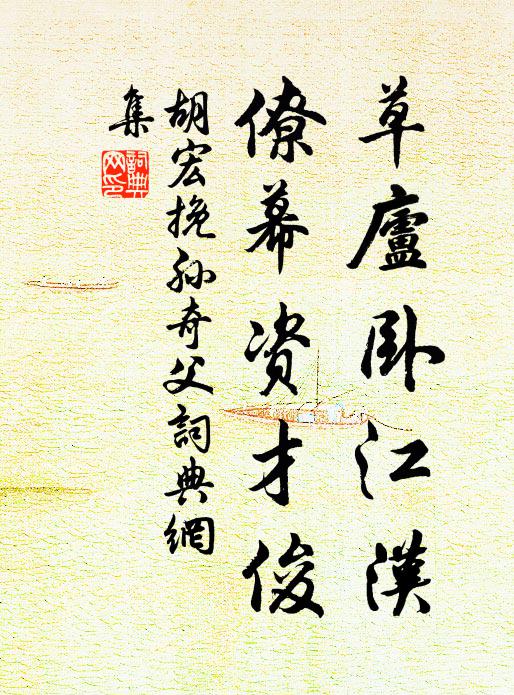 草廬卧江漢
僚幕資才俊
胡宏挽孫奇父詞典網
集
詞典網印